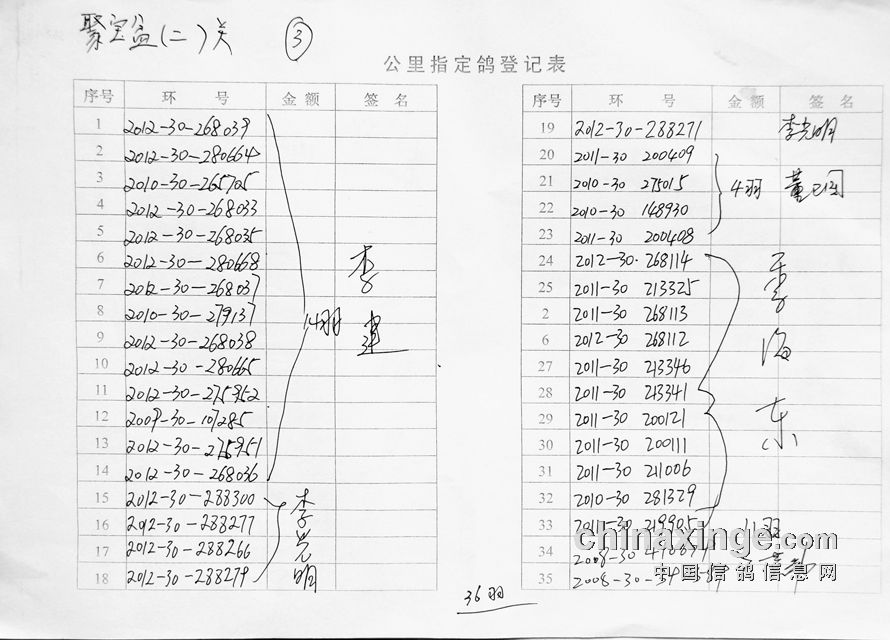 聚宝盆(二)关 ③
公里指定鸽登记表
序号 环 号 金额 签 名
1 2012-30-268039
2 2012-30-280664
3 2010-30-265705
4 2012-30-268033
5 2012-30-268035
6 2012-30-280668
7 2012-30-268037
8 2010-30-279137
9 2012-30-268038
10 2012-30-280665
11 2012-30-275952
12 2009-30-107285
13 2012-30-275951
14 2012-30-268036
14羽 李建
15 2012-30-288300
16 2012-30-288277
17 2012-30-288266
18 2012-30-288279
李光明
序号 环 号 金额 签 名
19 2012-30-288271 李光明
20 2011-30 200409
21 2010-30 275015
22 2010-30 148930
23 2011-30 200408
4羽 董
24 2012-30-268114
25 2011-30 213325
2 2011-30 268113
6 2012-30 268112
27 2011-30 213346
28 2011-30 213341
29 2011-30 200121
30 2011-30 200111
31 2011-30 211006
32 2010-30 281329
33 2011-30 219905
11羽
李海东
34 2008-30
35 2008-30-
36羽
chinaxinge.com
中国信鸽信息网